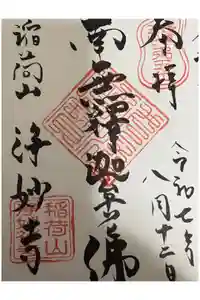 奉拝
令和七年
八月十二日
南無釋迦牟尼佛
稲荷山
浄妙寺
稲荷山